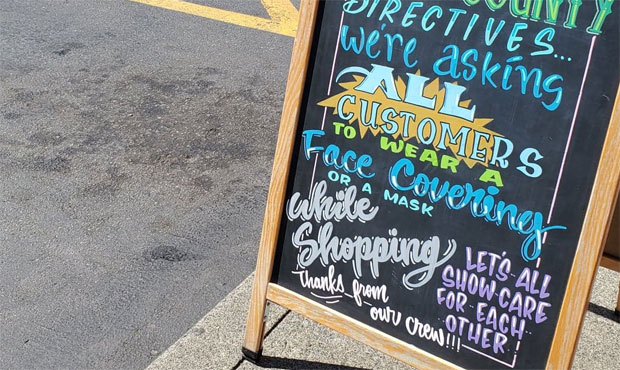 COUNTY
DIRECTIVES...
we're asking
ALL
CUSTOMERS
TO WEAR A
Face Covering
OR A MASK
while
Shopping
thanks from
our crew!!!
LET'S ALL
SHOW CARE
FOR EACH
OTHER